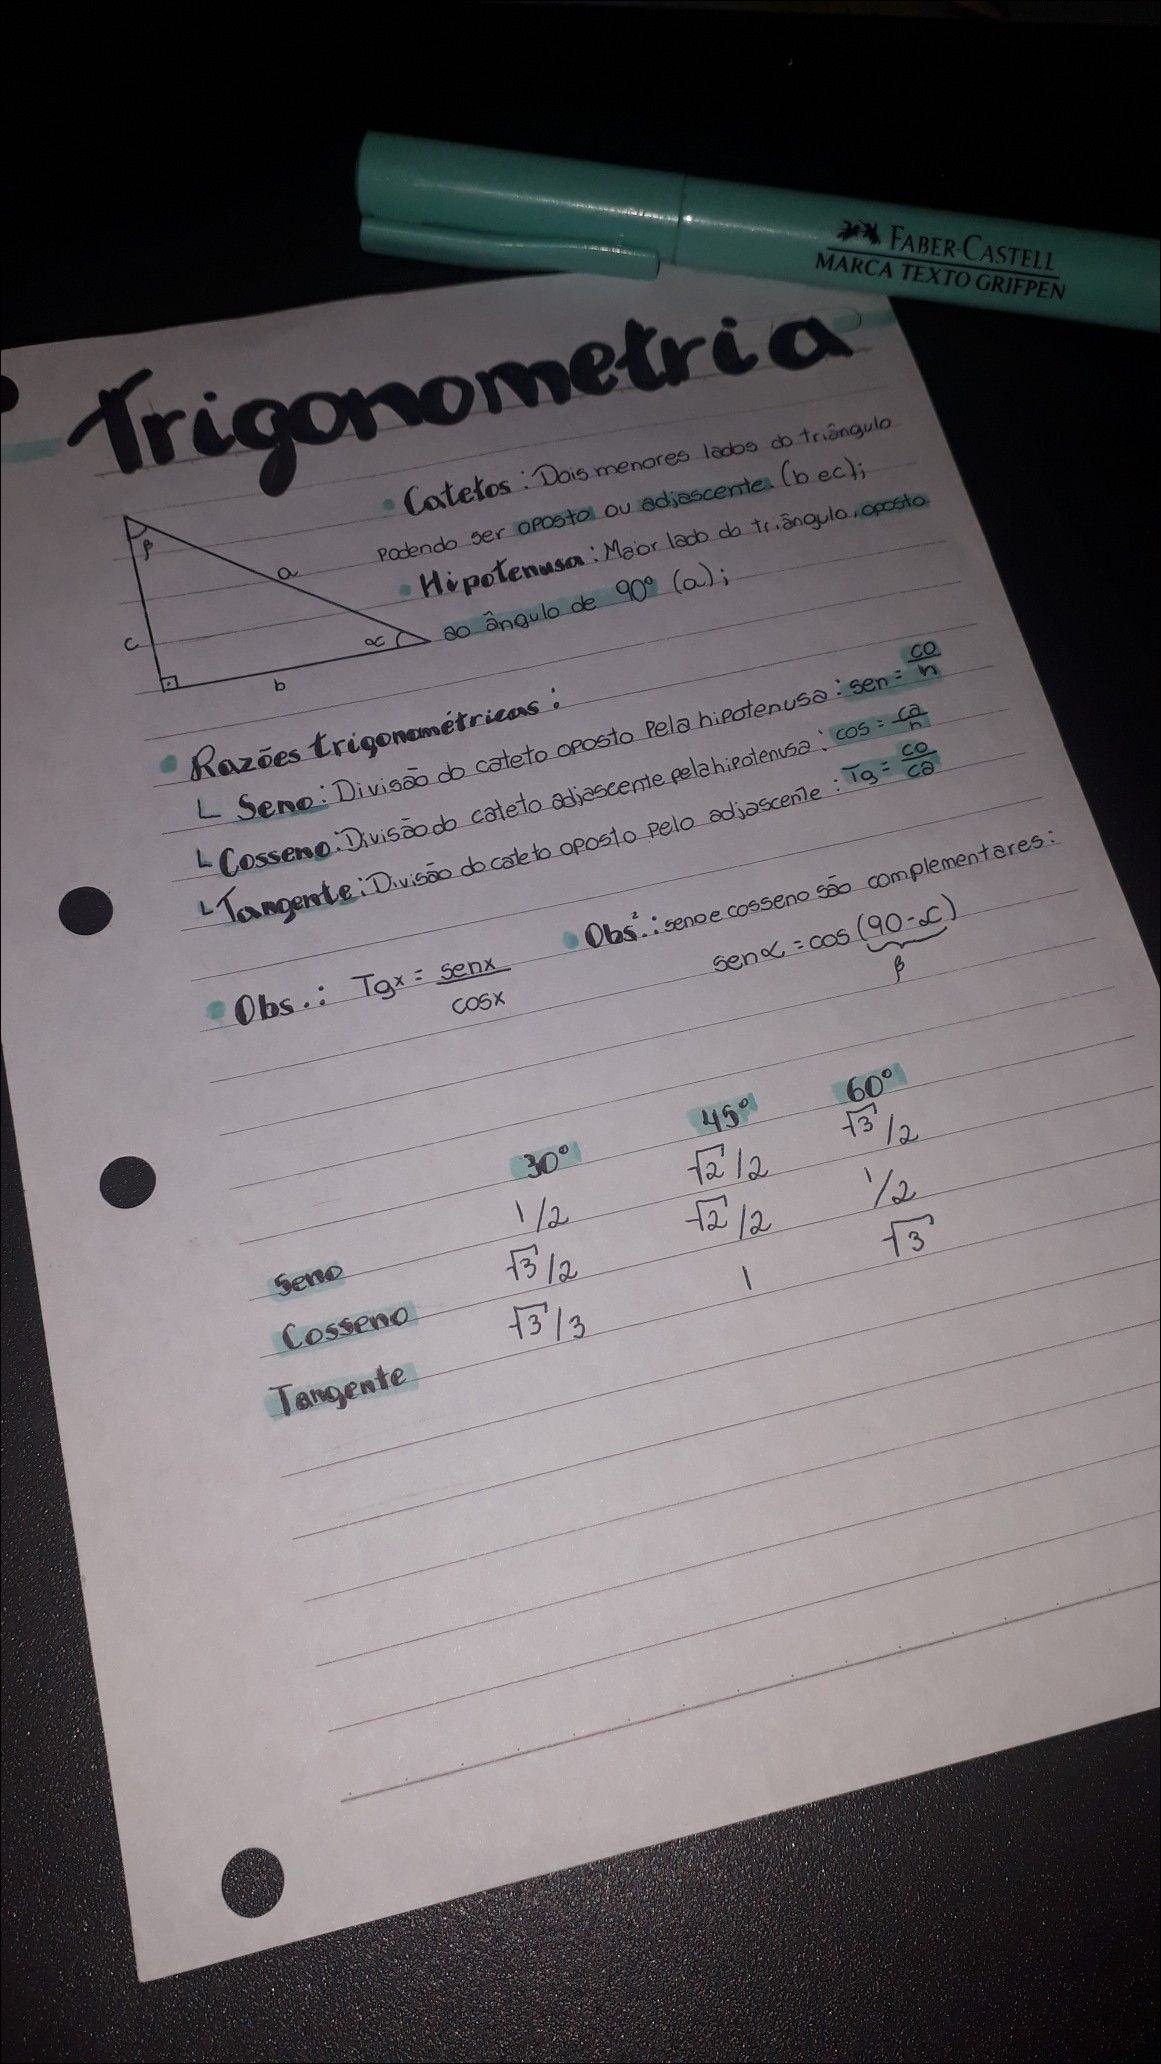 FABER-CASTELL
MARCA TEXTO GRIFPEN
Trigonometria
• Catetos: Dois menores lados do triângulo
podendo ser oposto ou adjascente. (b e c);
• Hipotenusa: Maior lado do triângulo, oposto
ao ângulo de 90° (a);
β
a
c
α
b
• Razões trigonométricas:
L Seno: Divisão do cateto oposto pela hipotenusa: sen = co/h
L Cosseno: Divisão do cateto adjascente pela hipotenusa: cos = ca/h
L Tangente: Divisão do cateto oposto pelo adjascente: Tg = co/ca
• Obs.: Tgx = senx/cosx
• Obs².: seno e cosseno são complementares:
sen α = cos (90 - α)
β
30° 45° 60°
Seno 1/2 √2/2 √3/2
Cosseno √3/2 √2/2 1/2
Tangente √3/3 1 √3